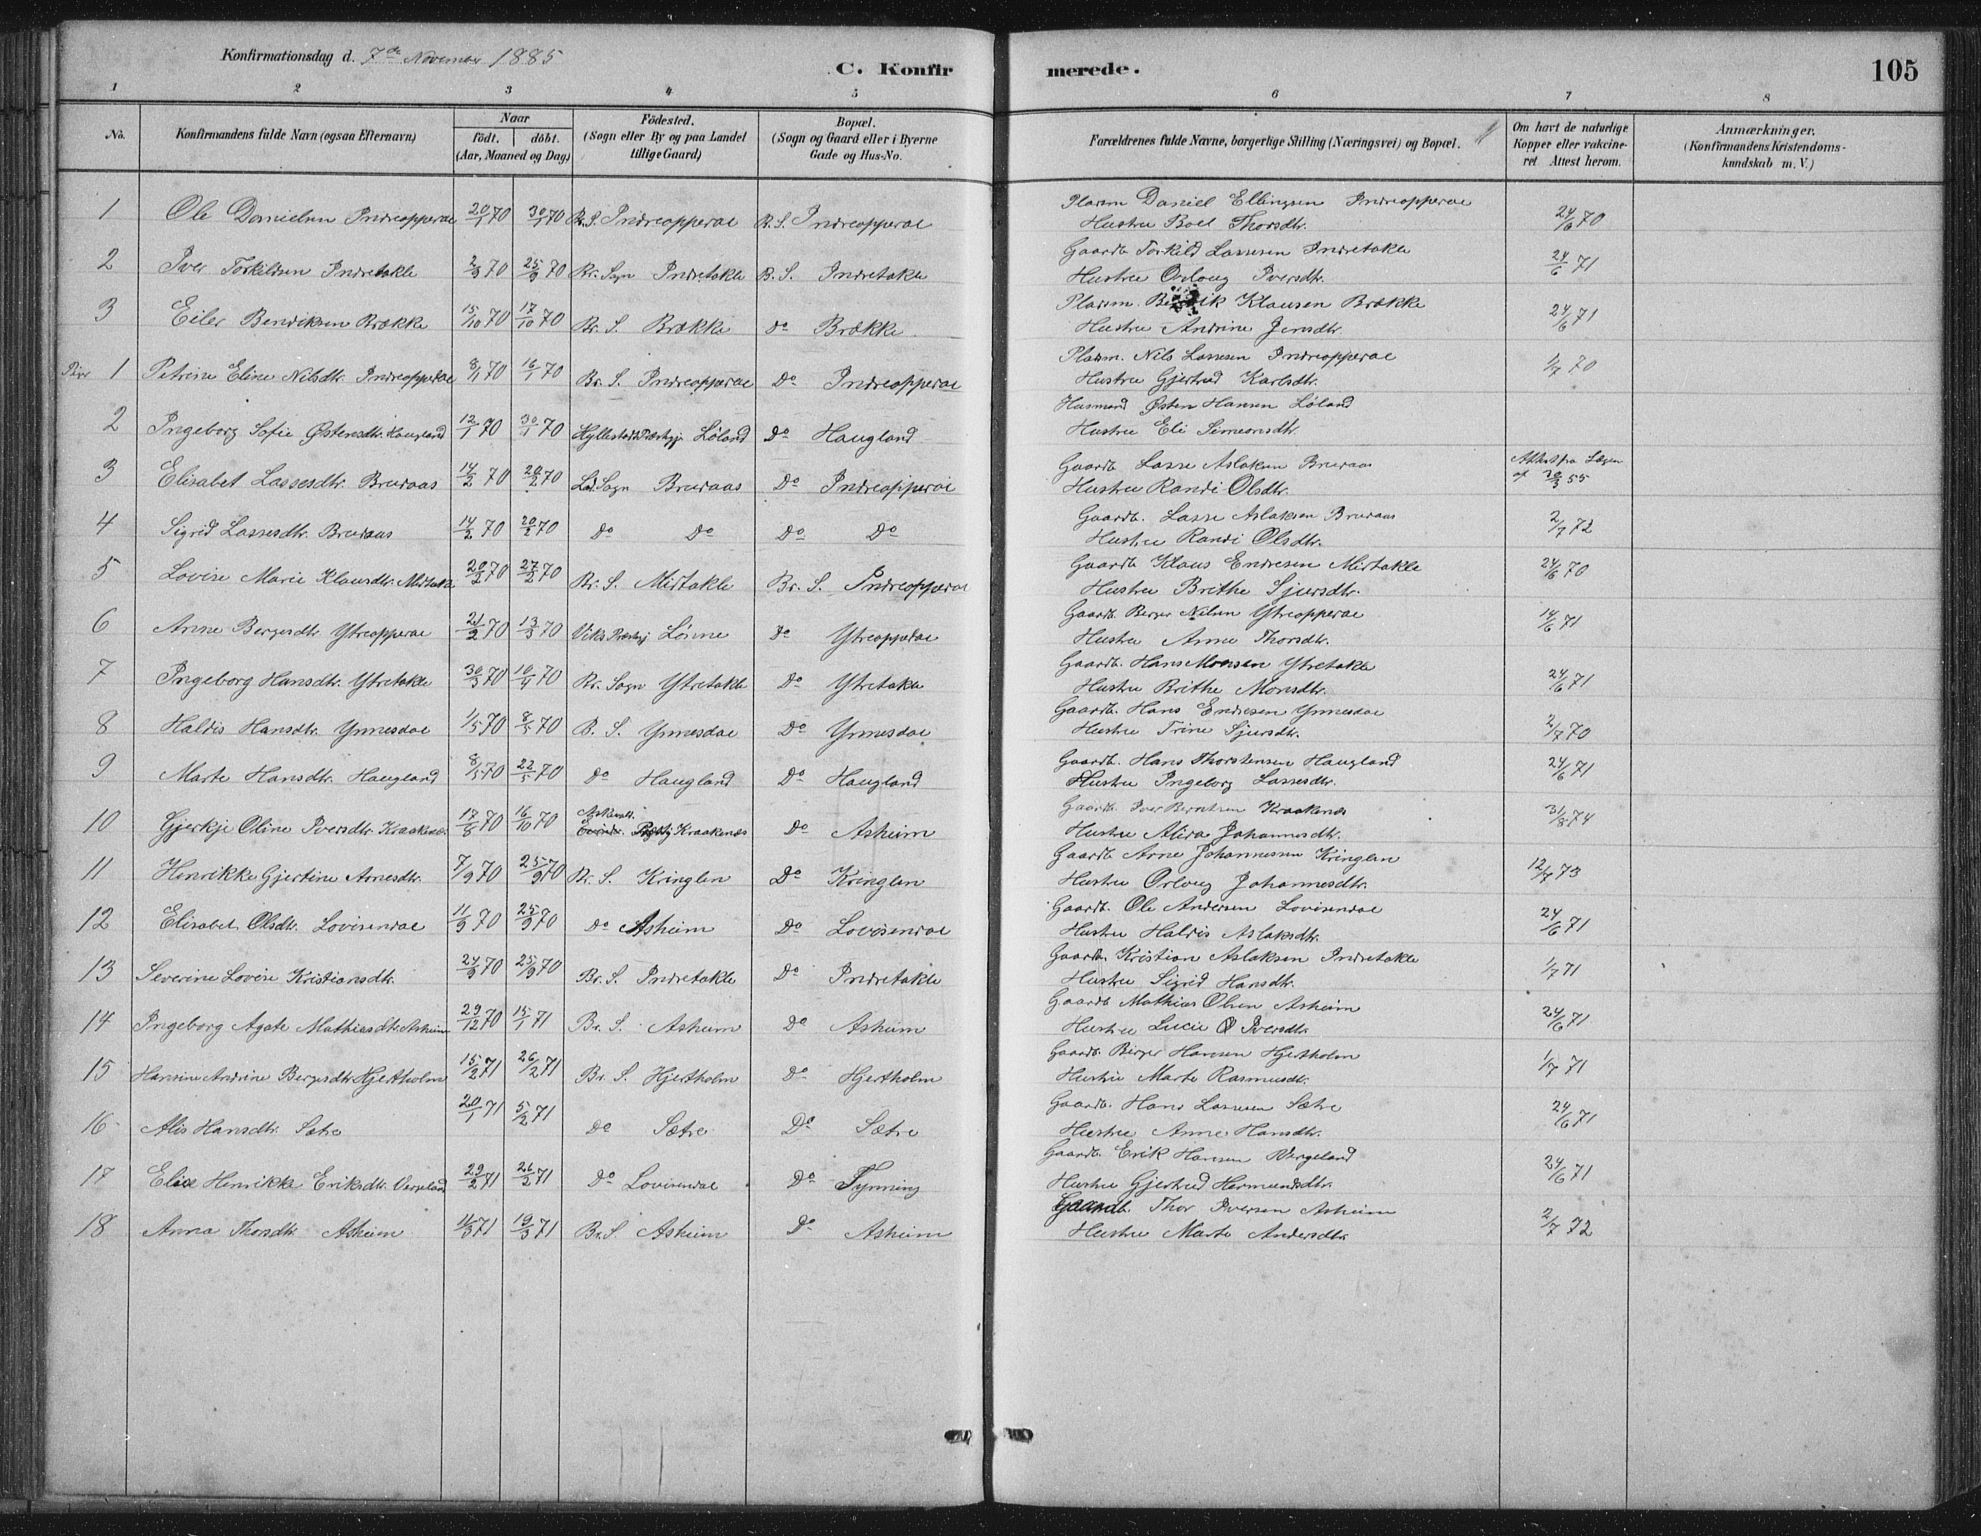 Konfirmationsdag d. 7de November 1885
C. Konfirmerede.
105
1 2 3 4 5 6 7 8
No.
Konfirmandens fulde Navn (ogsaa Efternavn)
Naar
födt. döbt.
(Aar, Maaned og Dag)
Födested.
(Sogn eller By og paa Landet
tillige Gaard)
Bopæl.
(Sogn og Gaard eller i Byerne
Gade og Hus-No.
Forældrenes fulde Navne, borgerlige Stilling (Næringsvei) og Bopæl.
Om havt de naturlige
Kopper eller vakcineret
Attest herom.
Anmærkninger.
(Konfirmandens Kristendomskundskab
m. V.)
1 Ole Danielsen Indreopperae 20/1 70 30/1 70 Br. S. Indreopperae B. S. Indreopperae Plasm Daniel Ellingsen Indreopperae 24/6 70
Hustru Boel Thorsdtr.
2 Iver Torkildsen Indretakle 2/9 70 25/9 70 Br. Sogn Indretakle B. S. Indretakle Gaardb. Torkild Lassesen Indretakle 24/6 71
Hustru Orloug Iversdtr.
3 Eiler Bendiksen Brække 15/10 70 17/10 70 Br. S. Brække do Brække Plassm. Bendik Klausen Brække 24/6 71
Hustru Andrine Jensdtr.
1 Petrine Eline Nilsdtr. Indreopperae 8/1 70 16/1 70 Br. S. Indreopperae Do Indreopperae Plassm. Nils Lassesen Indreopperae 1/7 70
Hustru Gjertrud Karlsdtr.
2 Ingeborg Sofie Østensdtr. Haugland 12/1 70 30/1 70 Hyllestads Præstgj Løland Do Haugland Husmand Østen Hansen Løland
Hustru Eli Simeonsdtr.
3 Elisabet Lassesdtr. Bruraas 14/2 70 20/2 70 Lad. Sogn Bruraas Do Indreopperae Gaardb. Lasse Aslaksen Bruraas Attest fra Lægen
Hustru Randi Olsdtr. af 30/3 55
4 Sigrid Lassesdtr. Bruraas 14/2 70 20/2 70 Do Do Do Do Gaardb. Lasse Aslaksen Bruraas 2/7 72
Hustru Randi Olsdtr.
5 Lovise Marie Klausdtr. Mistakle 20/2 70 27/2 70 Br. S. Mistakle Br. S. Indreopperae Gaardb Klaus Endresen Mistakle 24/6 70
Hustru Brithe Sjursdtr.
6 Anne Bergesdtr Ytreopperae 21/2 70 13/3 70 Viks Præstgj Lønne Do Ytreopperae Gaardb Berger Nilsen Ytreopperae 14/6 71
Hustru Anne Thorsdtr.
7 Ingeborg Hansdtr. Ytretakle 30/3 70 10/4 70 Br. Sogn Ytretakle Do Ytretakle Gaardb. Hans Monsen Ytretakle 24/6 71
Hustru Brithe Monsdtr.
8 Haldis Hansdtr. Ynnesdae 1/5 70 8/5 70 B. S. Ynnesdae Do Ynnesdae Gaardb. Hans Endresen Ynnesdae 2/7 70
Hustru Trine Sjursdtr.
9 Marte Hansdtr. Haugland 8/5 70 22/5 70 Do Haugland Do Haugland Gaardb. Hans Thorstensen Haugland 24/6 71
Hustru Ingeborg Lassesdtr.
10 Gjerkje Oline Iversdtr. Kraakenæs 17/8 70 16/10 70 Askevold Kraakenæs Do Asheim Gaardb Iver Berntsen Kraakenæs 31/8 74
Hustru Alida Johannesdtr.
11 Henrikke Gjertine Arnesdtr. 7/9 70 25/9 70 Br. S. Kringlen Do Kringlen Gaardb Arne Johannesen Kringlen 12/7 73
Hustru Orloug Johannesdtr.
12 Elisabet Olsdtr. Lovisendae 11/9 70 25/9 70 Do Asheim Do Lovisendae Gaardb. Ole Andersen Lovisendae 24/6 71
Hustru Haldis Aslaksdtr.
13 Severine Lovise Kristiansdtr. 24/9 70 25/9 70 Br. S. Indretakle Do Indretakle Gaardb. Kristian Aslaksen Indretakle 1/7 71
Hustru Sigrid Hansdtr.
14 Ingeborg Agate Mathiasdtr. Asheim 29/12 70 15/1 71 Br. S. Asheim Do Asheim Gaardb. Mathias Olsen Asheim 24/6 71
Hustru Lucie Iversdtr.
15 Hansine Andrine Bergesdtr. Hjertholm 15/2 71 26/2 71 Br. S. Hjertholm Do Hjertholm Gaardb. Birger Hansen Hjertholm 1/7 71
Hustru Marte Rasmusdtr.
16 Alis Hansdtr. Sætre 20/1 71 5/2 71 Do Sætre Do Sætre Gaardb. Hans Lassesen Sætre 24/6 71
Hustru Anne Hansdtr.
17 Elise Henrikke Eriksdtr. Vergeland 22/2 71 26/2 71 Do Lovisendae Do Tynning Gaardb. Erik Hansen Vergeland 24/6 71
Hustru Gjertrud Hermundsdtr.
18 Anna Thorsdtr. Asheim 1/3 71 19/3 71 Br. S. Asheim Do Asheim Gaardb. Thor Iversen Asheim 2/7 72
Hustru Marte Andersdtr.